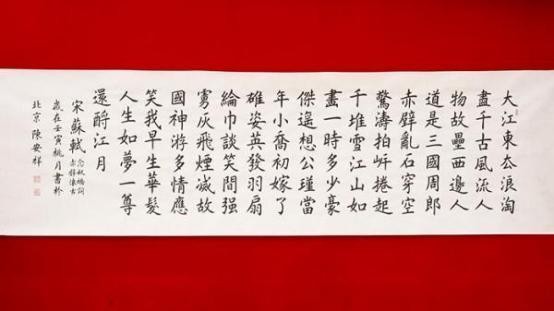 大江東去浪淘
盡千古風流人
物故壘西邊人
道是三國周郎
赤壁亂石穿空
驚濤拍岍捲起
千堆雪江山如
畫一時多少豪
傑遥想公瑾當
年小喬初嫁了
雄姿英發羽扇
綸巾談笑間强
虜灰飛煙滅故
國神游多情應
笑我早生華髮
人生如夢一尊
還酹江月
宋蘇軾
念奴嬌詞
赤壁懷古
歲在壬寅桃月書於
北京陳安祥